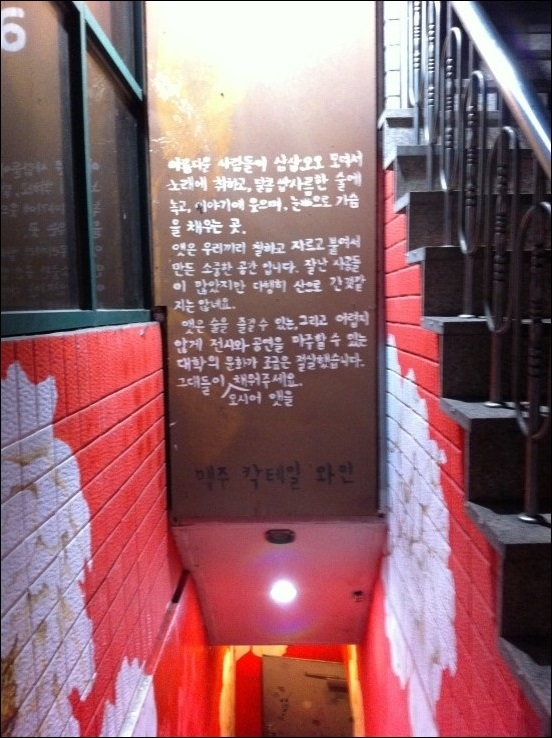 6
아름다운 사람들이 삼삼오오 모여서
노래에 취하고, 달콤 쌉싸름한 술에
녹고, 이야기에 웃으며, 눈빛으로 가슴
을 채우는 곳.
앳은 우리끼리 칠하고 자르고 붙여서
만든 소중한 공간 입니다. 잘난 사공들
이 많았지만 다행히 산으로 간것같
지는 않네요.
앳은 술을 즐길 수 있는, 그리고 어렵지
않게 전시와 공연을 마주할 수 있는
대학의 문화가 조금은 절실했습니다.
그대들이 채워주세요.
오시어 앳을
맥주 칵테일 와인